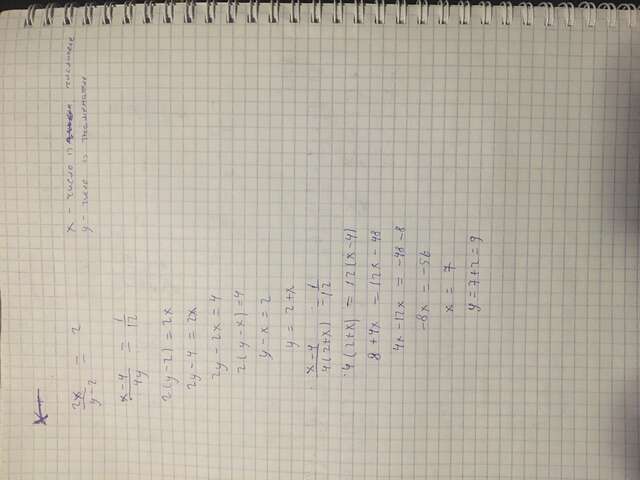 x - число в числителе
y - число в знаменателе
2x/(y-2) = 2
(x-4)/(4y) = 1/12
2(y-2) = 2x
2y-4 = 2x
2y-2x = 4
2(y-x) = 4
y-x = 2
y = 2+x
(x-4)/(4(2+x)) = 1/12
4(2+x) = 12(x-4)
8+4x = 12x-48
4x-12x = -48-8
-8x = -56
x = 7
y = 7+2 = 9